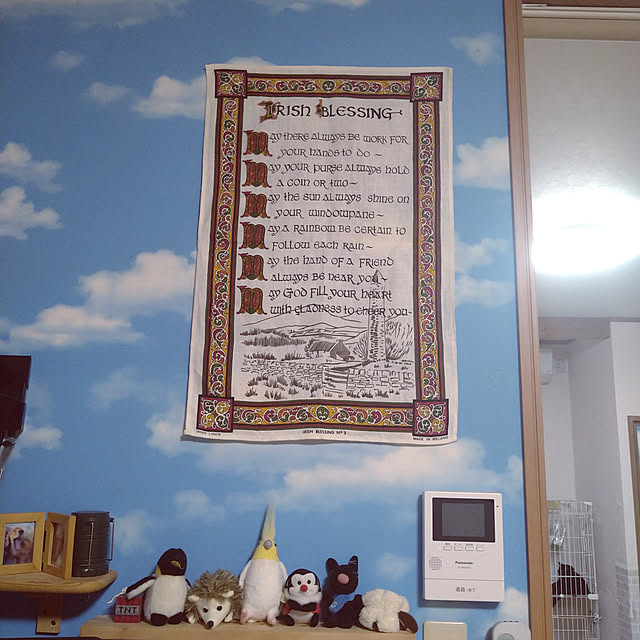 IRISH BLESSING
MAY THERE ALWAYS BE WORK FOR
YOUR HANDS TO DO ~
MAY YOUR PURSE ALWAYS HOLD
A COIN OR TWO ~
MAY THE SUN ALWAYS SHINE ON
YOUR WINDOWPANE ~
MAY A RAINBOW BE CERTAIN TO
FOLLOW EACH RAIN ~
MAY THE HAND OF A FRIEND
ALWAYS BE NEAR YOU ~
MAY GOD FILL YOUR HEART
WITH GLADNESS TO CHEER YOU ~
IRISH BLESSING Nº 2
MADE IN IRELAND
Panasonic
通話/終了
TNT